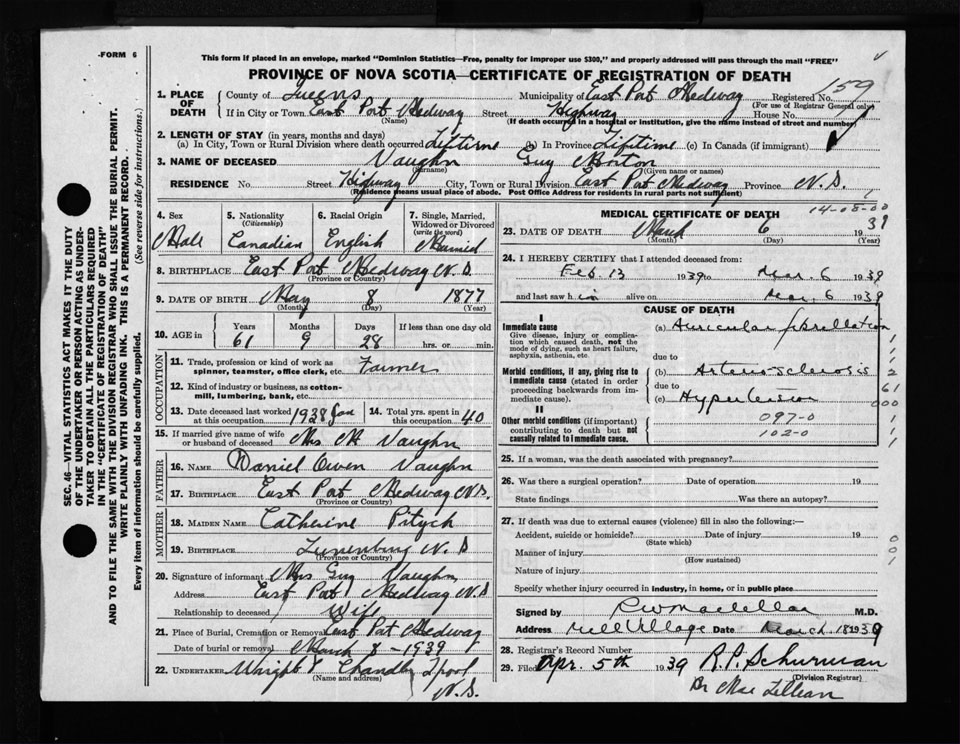 FORM 6
This form if placed in an envelope, marked "Dominion Statistics—Free, penalty for improper use $300," and properly addressed will pass through the mail "FREE"
PROVINCE OF NOVA SCOTIA—CERTIFICATE OF REGISTRATION OF DEATH
SEC. 46—VITAL STATISTICS ACT MAKES IT THE DUTY
OF THE UNDERTAKER OR PERSON ACTING AS UNDER-
TAKER TO OBTAIN ALL THE PARTICULARS REQUIRED
IN THE "CERTIFICATE OF REGISTRATION OF DEATH"
AND TO FILE THE SAME WITH THE DIVISION REGISTRAR WHO SHALL ISSUE THE BURIAL PERMIT.
WRITE PLAINLY WITH UNFADING INK. THIS IS A PERMANENT RECORD.
Every item of information should be carefully supplied. (See reverse side for instructions.)
1. PLACE OF DEATH County of Queens Municipality of East Port Medway Registered No. 159
(For use of Registrar General only)
If in City or Town East Port Medway Street Highway House No.
(Name) (If death occurred in a hospital or institution, give the name instead of street and number)
2. LENGTH OF STAY (in years, months and days)
(a) In City, Town or Rural Division where death occurred Lifetime (b) In Province Lifetime (c) In Canada (if immigrant)
3. NAME OF DECEASED Vaughn Guy Morton
(Surname) (Given name or names)
RESIDENCE No. Street Highway City, Town or Rural Division East Port Medway Province N.S.
(Residence means usual place of abode. Post Office Address for residents in rural parts not sufficient)
4. Sex Male
5. Nationality (Citizenship) Canadian
6. Racial Origin English
7. Single, Married, Widowed or Divorced (write the word) Married
8. BIRTHPLACE East Port Medway N.S.
(Province or Country)
9. DATE OF BIRTH May 8 1877
(Month) (Day) (Year)
10. AGE in Years 61 Months 9 Days 28 If less than one day old hrs. or min.
OCCUPATION
11. Trade, profession or kind of work as spinner, teamster, office clerk, etc. Farmer
12. Kind of industry or business, as cotton-mill, lumbering, bank, etc.
13. Date deceased last worked at this occupation 1938 Jan
14. Total yrs. spent in this occupation 40
15. If married give name of wife or husband of deceased Mrs M Vaughn
FATHER
16. NAME Daniel Owen Vaughn
17. BIRTHPLACE East Port Medway N.S.
MOTHER
18. MAIDEN NAME Catherine
19. BIRTHPLACE Lunenburg N.S
(Province or Country)
20. Signature of informant Mrs Guy Vaughn
Address East Port Medway N.S
Relationship to deceased Wife
21. Place of Burial, Cremation or Removal East Port Medway
Date of burial or removal March 8 - 1939
22. UNDERTAKER Wright & Chandler L'pool
(Name and address)
N.S.
MEDICAL CERTIFICATE OF DEATH 14-05-00
23. DATE OF DEATH March 6 1939
(Month) (Day) (Year)
24. I HEREBY CERTIFY that I attended deceased from:
Feb. 13 1939 to Mar. 6 1939
and last saw him alive on Mar. 6 1939
CAUSE OF DEATH
I
Immediate cause
Give disease, injury or complication which caused death, not the mode of dying, such as heart failure, asphyxia, asthenia, etc.
(a) Auricular fibrillation
due to
Morbid conditions, if any, giving rise to immediate cause (stated in order proceeding backwards from immediate cause).
(b) Arterio-sclerosis
due to
(c) Hypertension
II
Other morbid conditions (if important) contributing to death but not causally related to immediate cause.
097-0
102-0
25. If a woman, was the death associated with pregnancy?
26. Was there a surgical operation? Date of operation 19
State findings Was there an autopsy?
27. If death was due to external causes (violence) fill in also the following:—
Accident, suicide or homicide? Date of injury 19
(State which)
Manner of injury
(How sustained)
Nature of injury
Specify whether injury occurred in industry, in home, or in public place
Signed by M.D.
Address Mill Village Date March. 18 1939
28. Registrar's Record Number
29. Filed Apr. 5th 1939 R.P. Schurman
(Division Registrar)